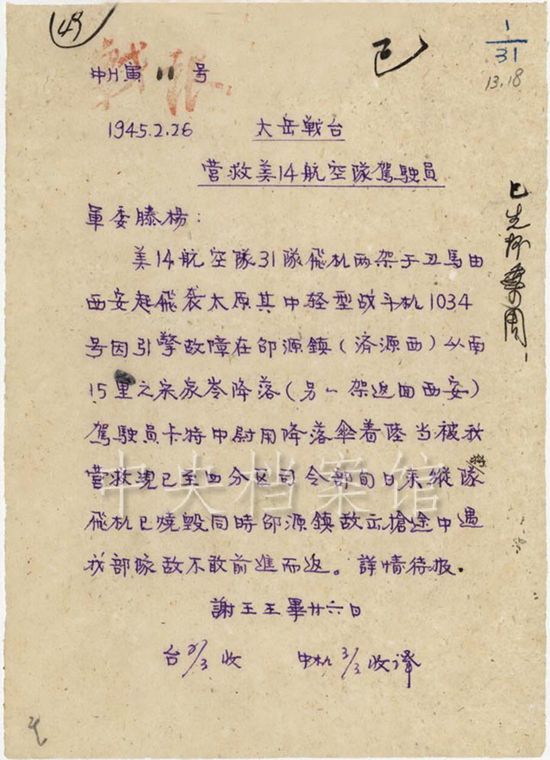 49
1
31
13.18
戰報
卅寅 11 号
1945.2.26 太岳戰台
营救美14航空隊駕駛員
軍委滕楊：
美14航空隊31隊飛机两架于丑馬由
西安起飛袭太原其中轻型战斗机1034
号因引擎故障在邵源鎮（济源西）以南
15里之宋家岺降落（另一架返回西安）
駕駛員卡特中尉用降落伞着陸当被我
营救現已至四分区司令部旬日來縱隊
飛机已燒毁同時邵源鎮敌出搶途中遇
我部隊敌不敢前進而返。詳情待报.
謝王王畢廿六日
台 3/3 收 中机 3/3 收譯
已先抄
中央档案馆